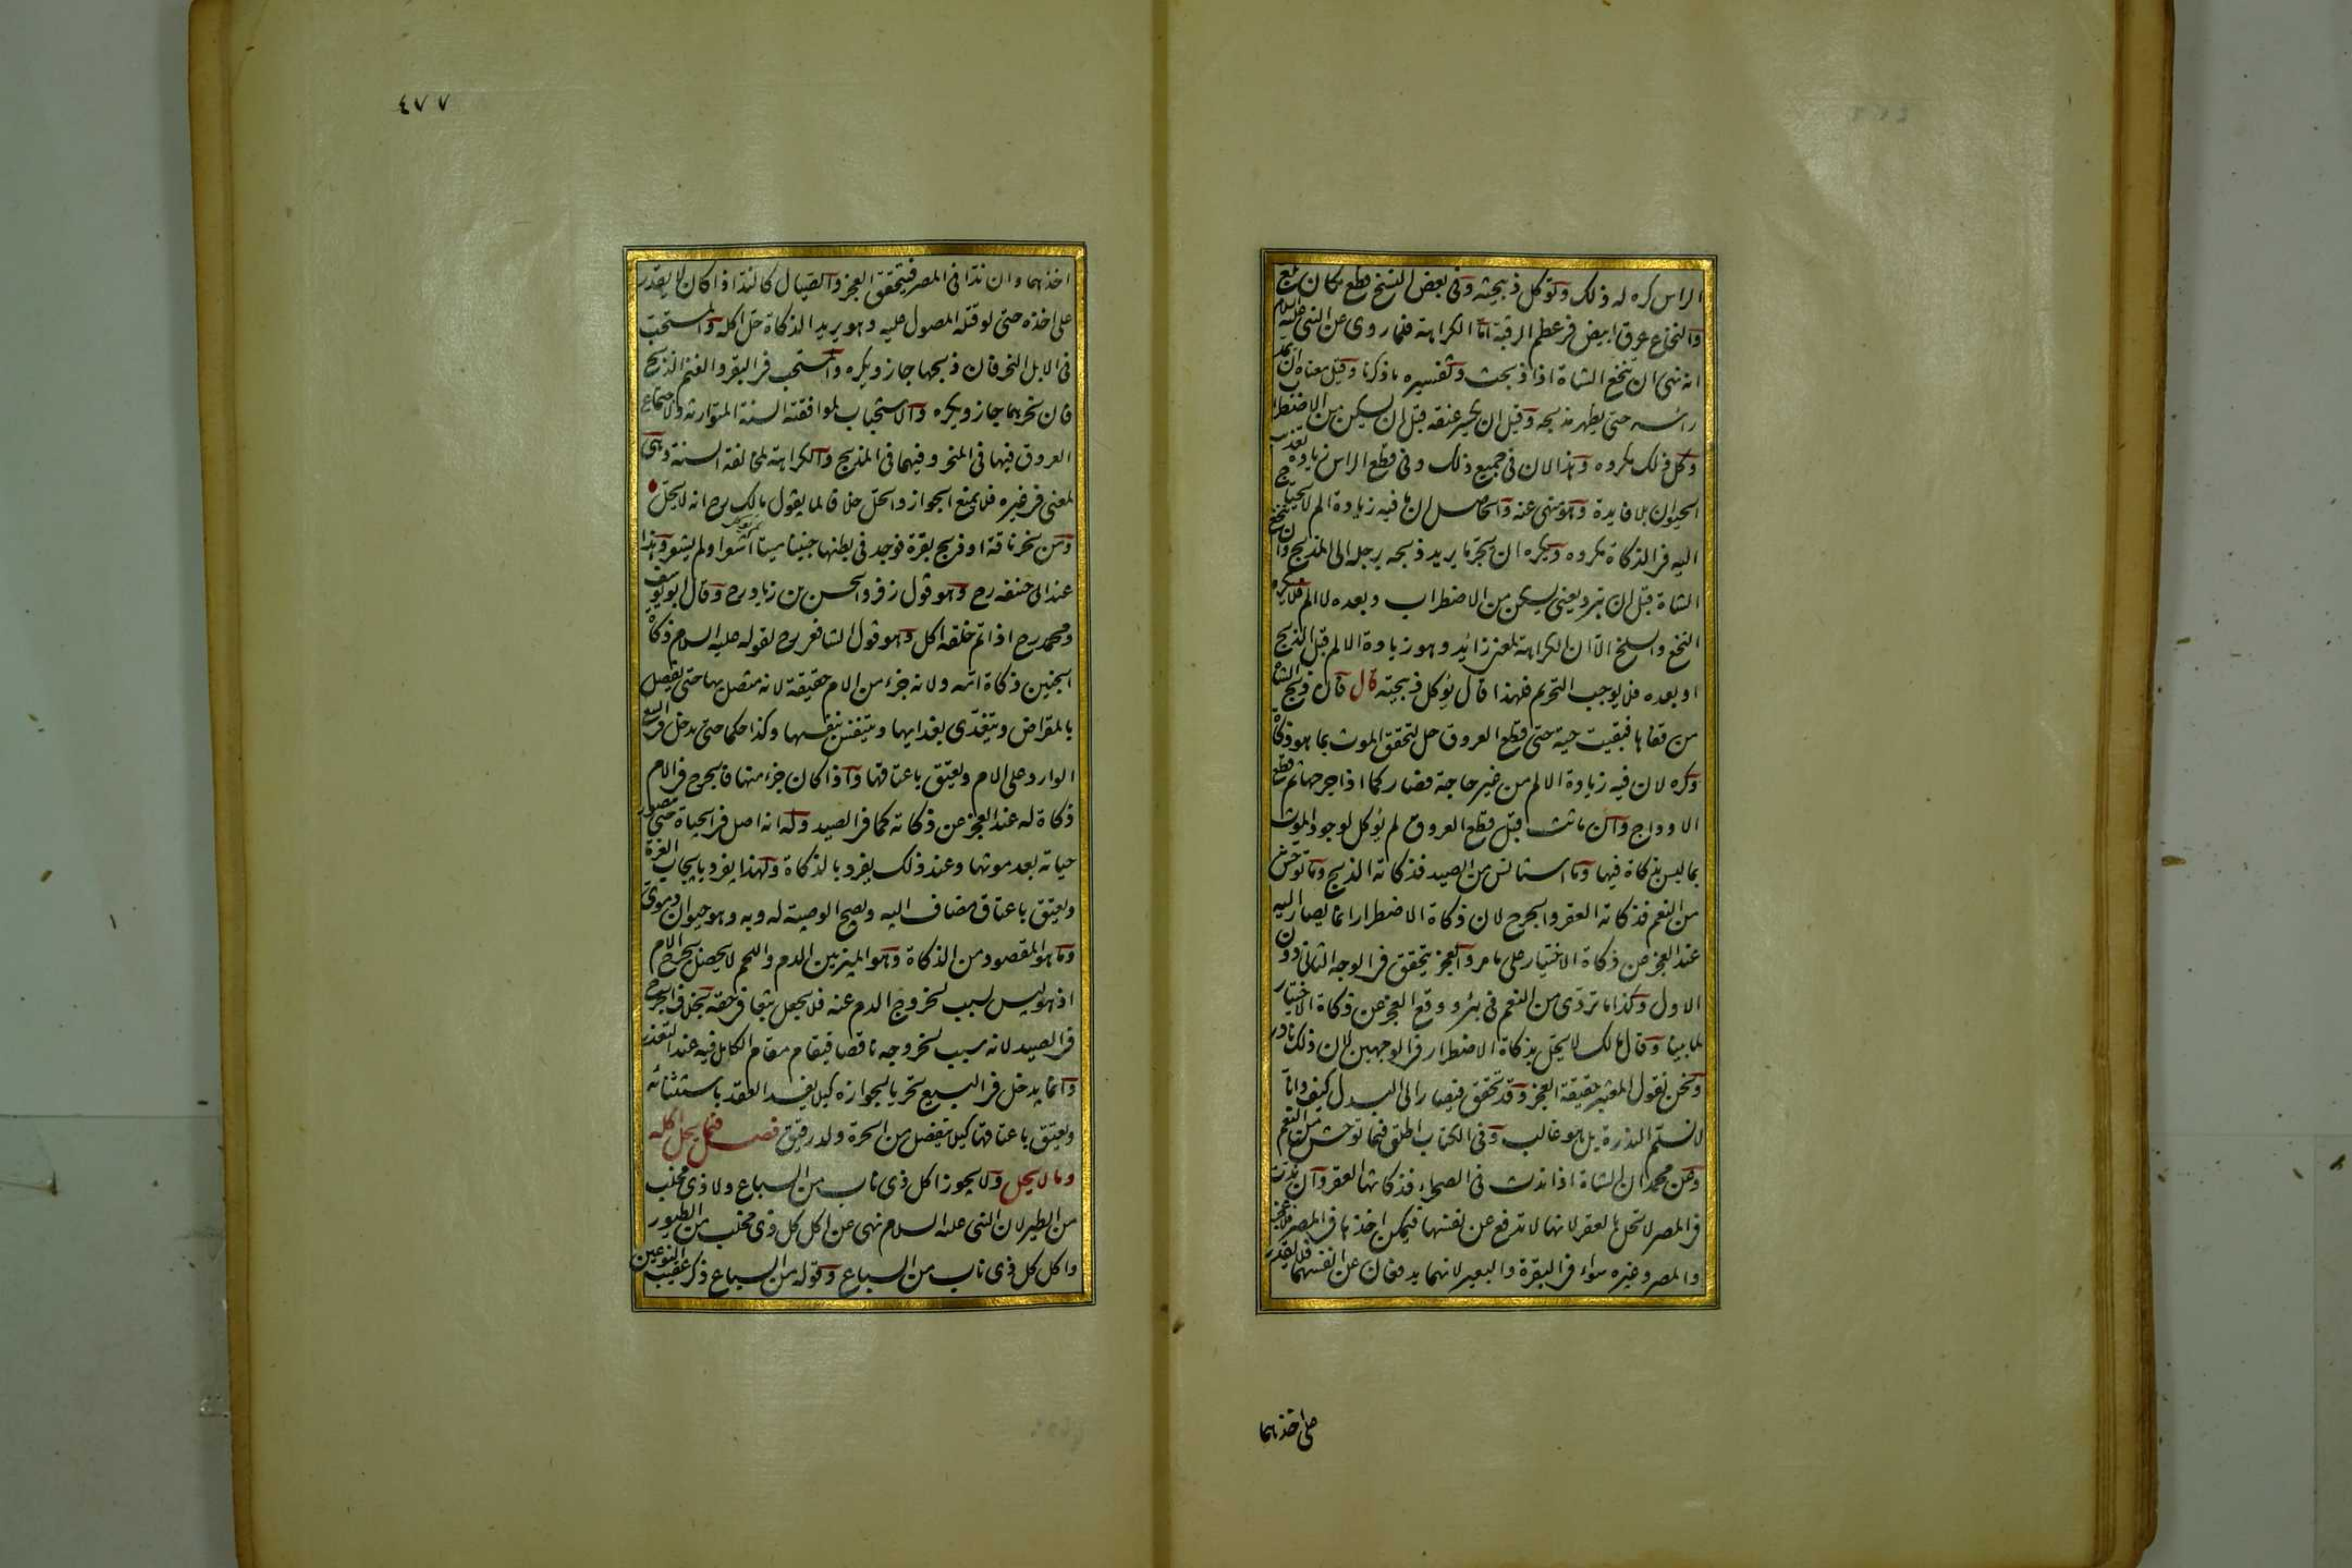 الراس كره له ذلك وتؤكل ذبيحته وفى بعض النسخ قطع مكان بلغ
والنخاع عرق ابيض فى عظم الرقبة اما الكراهة فلما روى عن النبى عليه السلام
انه نهى ان تنخع الشاة اذا ذبحت وتفسيره ما ذكرنا وقيل معناه ان يمد
راسه حتى يظهر مذبحه وقيل ان يكسر عنقه قبل ان يسكن من الاضطراب
وكل ذلك مكروه وهذا لان فى جميع ذلك وفى قطع الراس زيادة تعذيب
الحيوان بلا فايدة وهو منهى عنه والحاصل ان ما فيه زيادة الم لا يحتاج
اليه فى الذكاة مكروه ويكره ان يجر ما يريد ذبحه برجله الى المذبح وان تنخع
الشاة قبل ان تبرد يعنى يسكن من الاضطراب وبعده لا الم فلا يكره
النخع والسلخ الا ان الكراهة لمعنى زائد وهو زيادة الالم قبل الذبح
او بعده فلا يوجب التحريم فلهذا قال يؤكل ذبيحته قال فان ذبح الشاة
من قفاها فبقيت حية حتى قطع العروق حل لتحقق الموت بما هو ذكاة
وكره لان فيه زيادة الالم من غير حاجة فصار كما اذا جرحها ثم قطع
الاوداج وان ماتت قبل قطع العروق لم يؤكل لوجود الموت
بما ليس بذكاة فيها وما استانس من الصيد فذكاته الذبح وما توحش
من النعم فذكاته العقر والجرح لان ذكاة الاضطرار انما يصار اليه
عند العجز عن ذكاة الاختيار على ما مر والعجز يتحقق فى الوجه الثانى دون
الاول وكذا ما تردى من النعم فى بئر ووقع العجز عن ذكاة الاختيار
لما بينا وقال مالك لا يحل بذكاة الاضطرار فى الوجهين لان ذلك نادر
ونحن نقول المعتبر حقيقة العجز وقد تحقق فيصار الى البدل كيف وانا
لا نسلم الندرة بل هو غالب وفى الكتاب اطلق فيما توحش من النعم
وعن محمد ان الشاة اذا ندت فى الصحراء فذكاتها العقر وان ندت
فى المصر لا تحل بالعقر لانها لا تدفع عن نفسها فيمكن اخذها فى المصر فلا عجز
والمصر وغيره سواء فى البقرة والبعير لانهما يدفعان عن انفسهما فلا يقدر
على اخذهما
٤٧٧
اخذهما وان ندا فى المصر فيتحقق العجز والصيال كالندّ اذا كان لا يقدر
على اخذه حتى لو قتله المصول عليه وهو يريد الذكاة حل اكله والمستحب
فى الابل النحر فان ذبحها جاز ويكره والمستحب فى البقر والغنم الذبح
فان نحرهما جاز ويكره والاستحباب لموافقته السنة المتوارثة ولاجتماع
العروق فيها فى المنحر وفيهما فى المذبح والكراهة لمخالفة السنة وهى
لمعنى فى غيره فلا يمنع الجواز والحل خلافا لما يقول مالك رح انه لا يحل
ومن نحر ناقة او ذبح بقرة فوجد فى بطنها جنينا ميتا اشعر او لم يشعر وهذا
عند ابى حنفه رح وهو قول زفر والحسن بن زياد رح وقال ابو يوسف
ومحمد رح اذا تم خلقه اكل وهو قول الشافعى رح لقوله عليه السلام ذكاة
الجنين ذكاة امه ولانه جزء من الام حقيقة لانه متصل بها حتى يفصل
بالمقراض ويتغدى بغدائها ويتنفس بنفسها وكذا حكما حتى يدخل فى البيع
الوارد على الام ويعتق باعتاقها واذا كان جزء منها فالجرح فى الام
ذكاة له عند العجز عن ذكاته كما فى الصيد وله انه اصل فى الحياة حتى تتصور
حياته بعد موتها وعند ذلك يفرد بالذكاة ولهذا يفرد بايجاب الغرة
ويعتق باعتاق مضاف اليه ويصح الوصية له وبه وهو حيوان دموى
وما هو المقصود من الذكاة وهو الميز بين الدم واللحم لا يحصل بجرح الام
اذ هو ليس بسبب لخروج الدم عنه فلا يجعل تبعا فى حقه بخلاف الجرح
فى الصيد لانه سبب لخروجه ناقصا فيقام مقام الكامل فيه عند التعذر
وانما يدخل فى البيع تحريا لجوازه كيلا يفسد العقد باستثنائه
ويعتق باعتاقها كيلا ينفصل من الحرة ولد رقيق فصل فيما يحل اكله
وما لا يحل ولا يجوز اكل ذى ناب من السباع ولا ذى مخلب
من الطير لان النبى عليه السلام نهى عن اكل كل ذى مخلب من الطيور
واكل كل ذى ناب من السباع وقوله من السباع ذكر عقيب النوعين